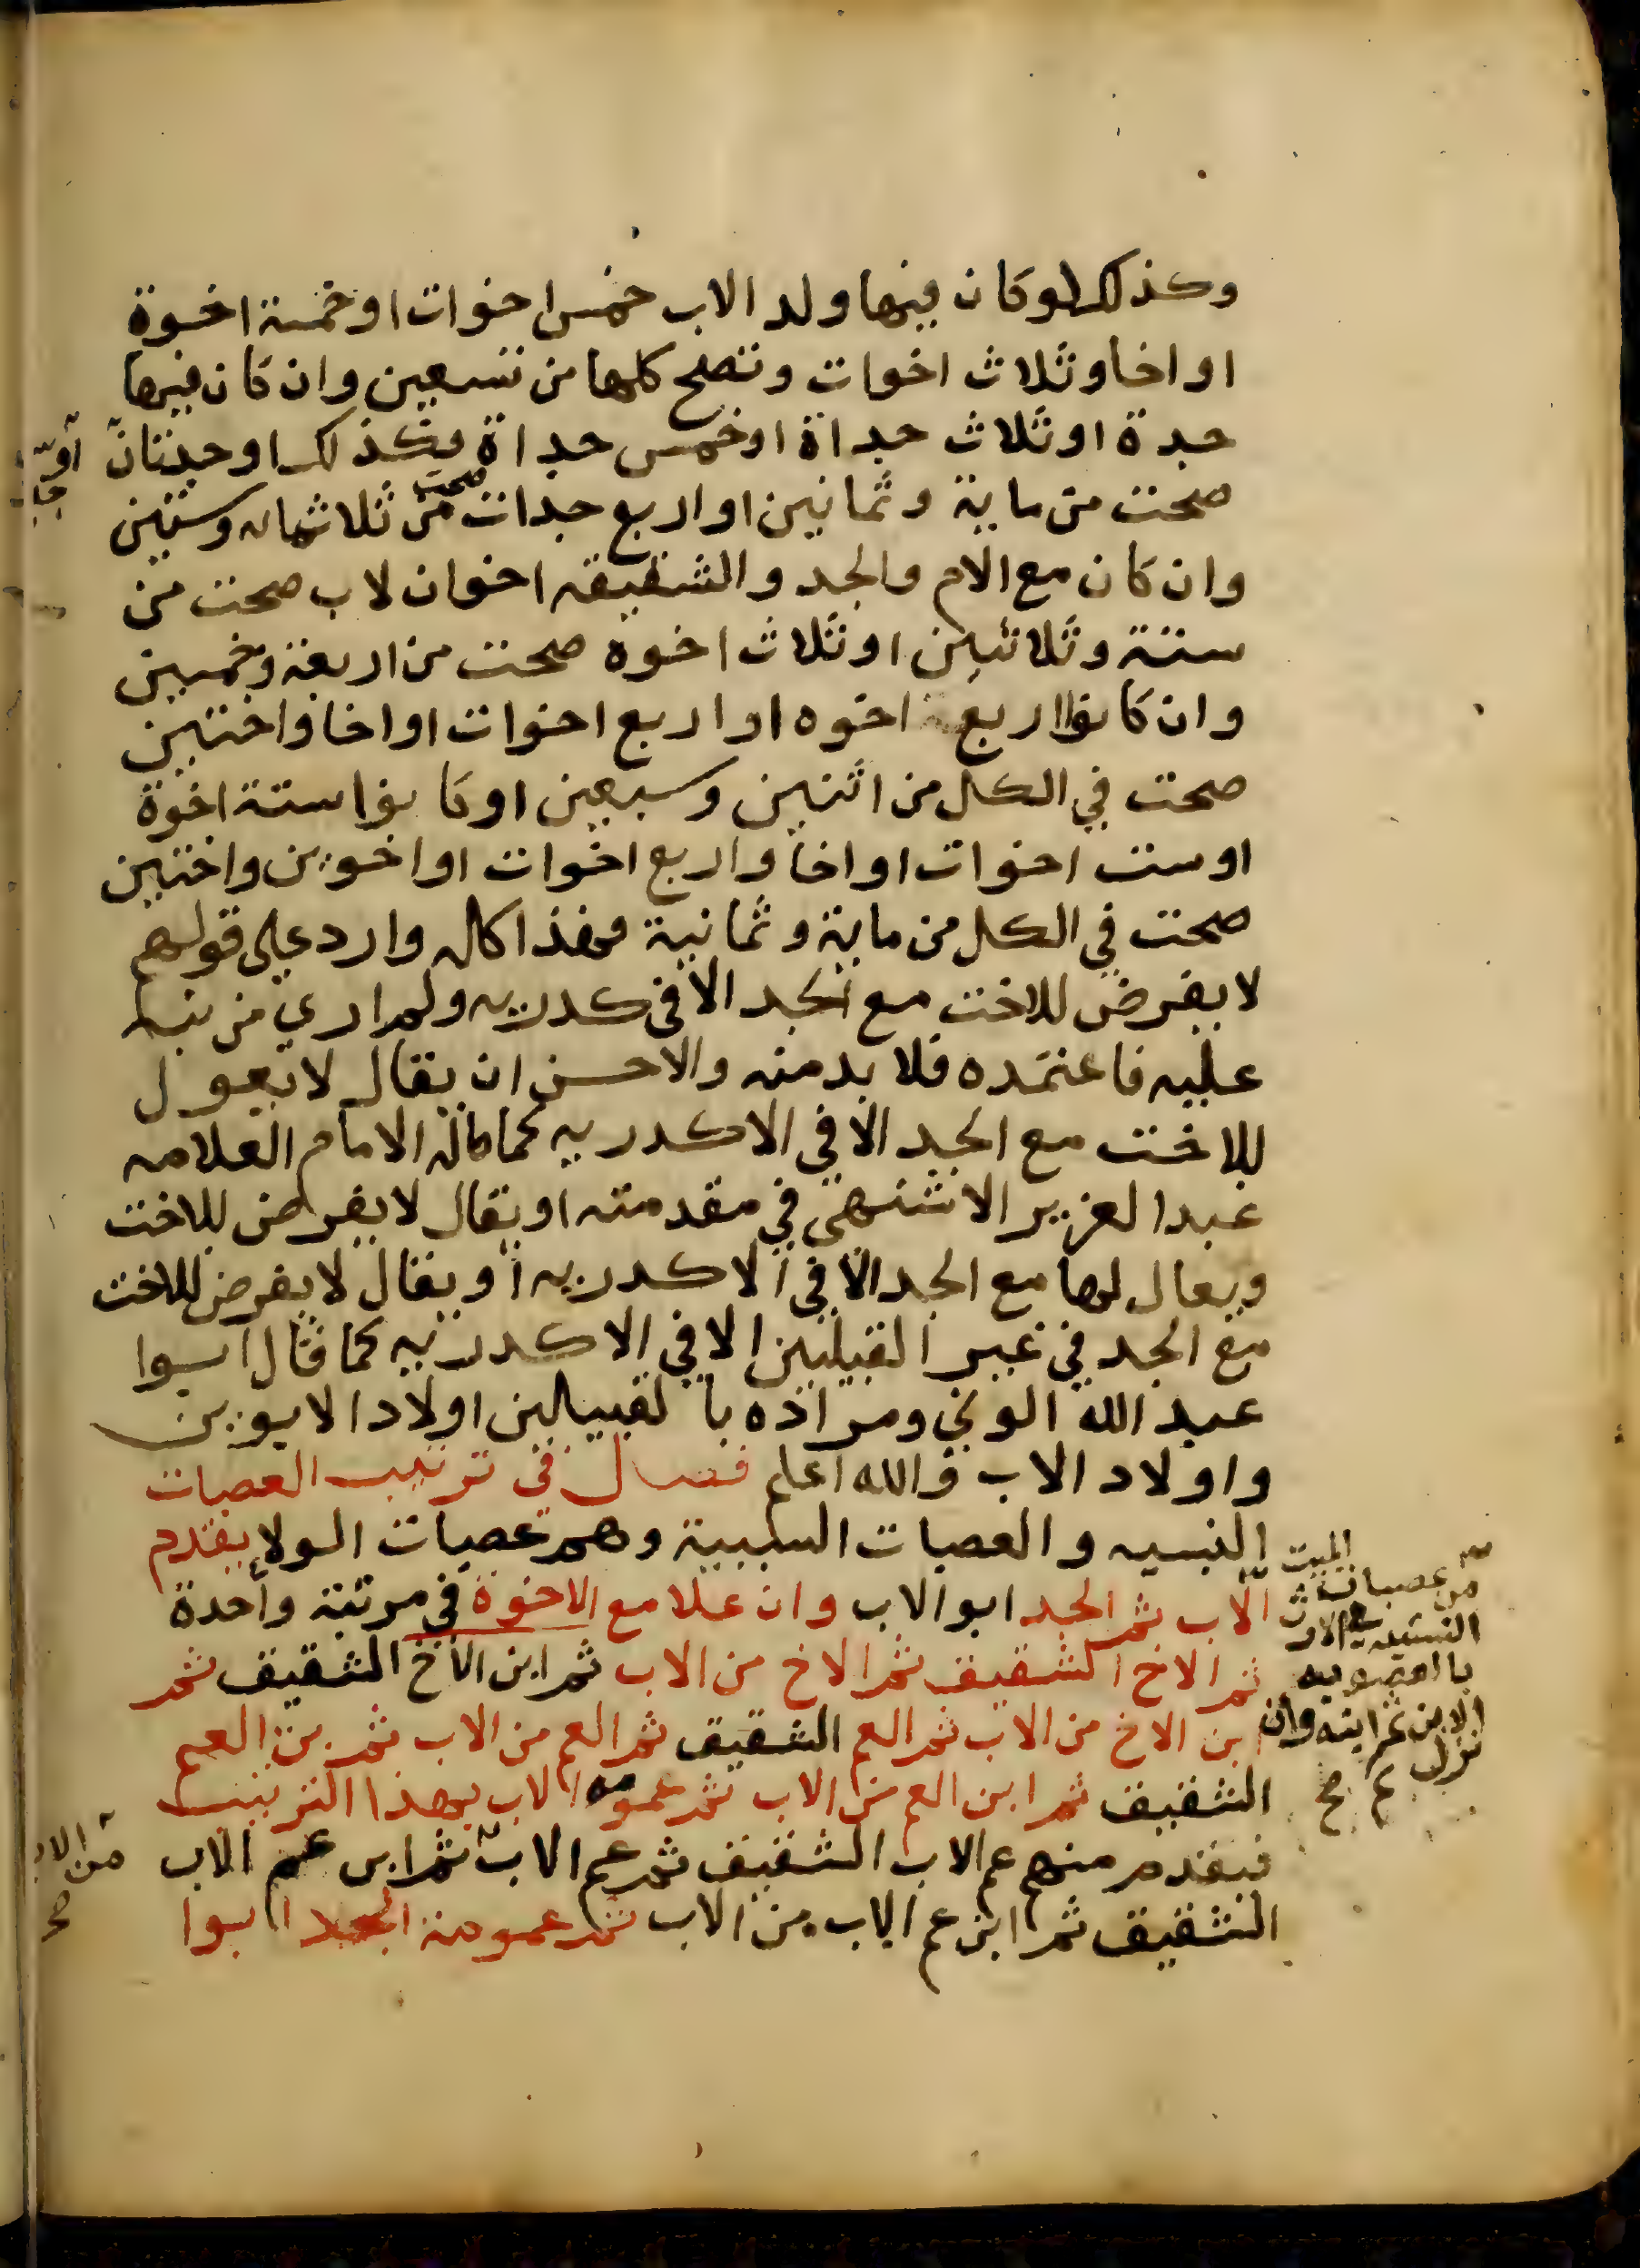 وكذلك لو كان فيها ولد الاب خمس اخوات او خمسة اخوة
او اخا وثلاث اخوات وتصح كلها من تسعين وان كان فيها
جدة او ثلاث جداة او خمس جداة فكذلك او جدتان
صحت من ماية وثمانين او اربع جدات صحت من ثلاثمايه وستين
وان كان مع الام والجد والشقيقه اخوان لاب صحت من
ستة وثلاثين او ثلاث اخوه صحت من اربعة وخمسين
وان كانوا اربع اخوه او اربع اخوات او اخا واختين
صحت في الكل من اثنين وسبعين او كانوا ستة اخوة
او ست اخوات او اخا واربع اخوات او اخوين واختين
صحت في الكل من ماية وثمانية فهذا كله وارد على قولهم
لا يفرض للاخت مع الجد الا في كدريه ولم اري من نبه
عليه فاعتمده فلا بد منه والاحسن ان يقال لا يعول
للاخت مع الجد الا في الاكدريه كما قاله الامام العلامه
عبد العزيز الاشنهي في مقدمته او يقال لا يفرض للاخت
ويعال لها مع الجد الا في الاكدريه او يقال لا يفرض للاخت
مع الجد في غير القبيلين الا في الاكدريه كما قال ابوا
عبد الله الوني ومراده بالقبيلين اولاد الابوين
واولاد الاب والله اعلم فصل في ترتيب العصبات
النسبيه والعصبات السببية وهم عصبات الولا يقدم
الاب ثم الجد ابو الاب وان علا مع الاخوة في مرتبة واحدة
ثم الاخ الشقيق ثم الاخ من الاب ثم ابن الاخ الشقيق ثم
ابن الاخ من الاب ثم العم الشقيق ثم العم من الاب ثم بن العم
الشقيق ثم ابن العم من الاب ثم عمومه الاب بهذا الترتيب
فيقدم منهم عم الاب الشقيق ثم عم الاب ثم ابن عم الاب
الشقيق ثم ابن عم الاب من الاب ثم عمومة الجد ابوا
من عصبات الميت
النسبيه في الارث
با العصوبيه
الابن ثم ابنه وان
نزل صح
من الاب
صح